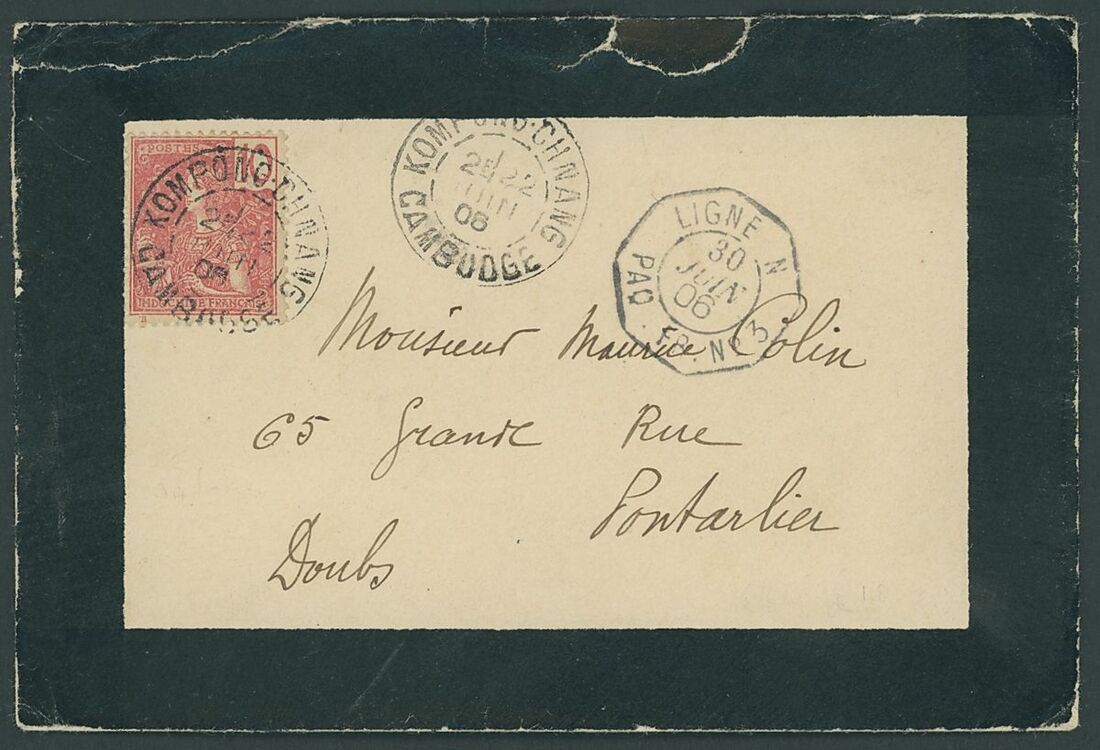 POSTES
10
INDO-CHINE FRANÇAISE
KOMPONG-CHNANG
JUIN
06
CAMBODGE
KOMPONG-CHNANG
2E / 22
JUIN
06
CAMBODGE
LIGNE N
30
JUIN
06
PAQ. FR. No 3
Monsieur Maurice Colin
65 Grande Rue
Pontarlier
Doubs